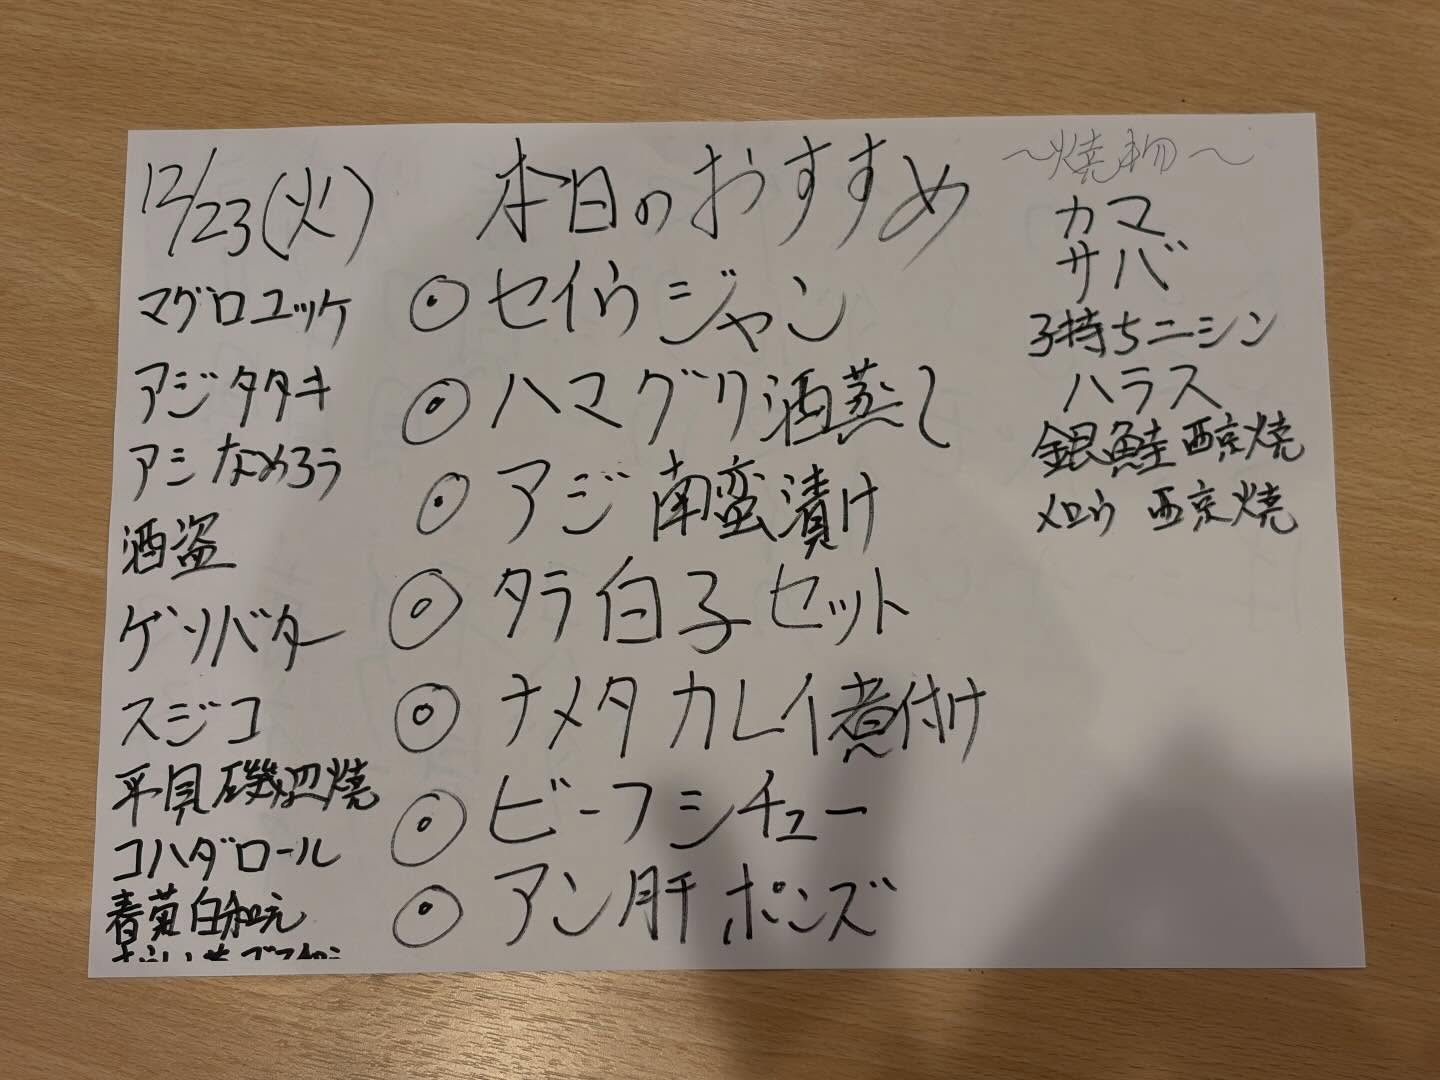 12/23(火)
マグロユッケ
アジタタキ
アジなめろう
酒盗
ゲソバター
スジコ
平貝磯辺焼
コハダロール
春菊白和え
本日のおすすめ
◎セイウジャン
◎ハマグリ酒蒸し
◎アジ南蛮漬け
◎タラ白子セット
◎ナメタカレイ煮付け
◎ビーフシチュー
◎アン肝ポンズ
~焼物~
カマ
サバ
子持ちニシン
ハラス
銀鮭西京焼
メロウ 西京焼